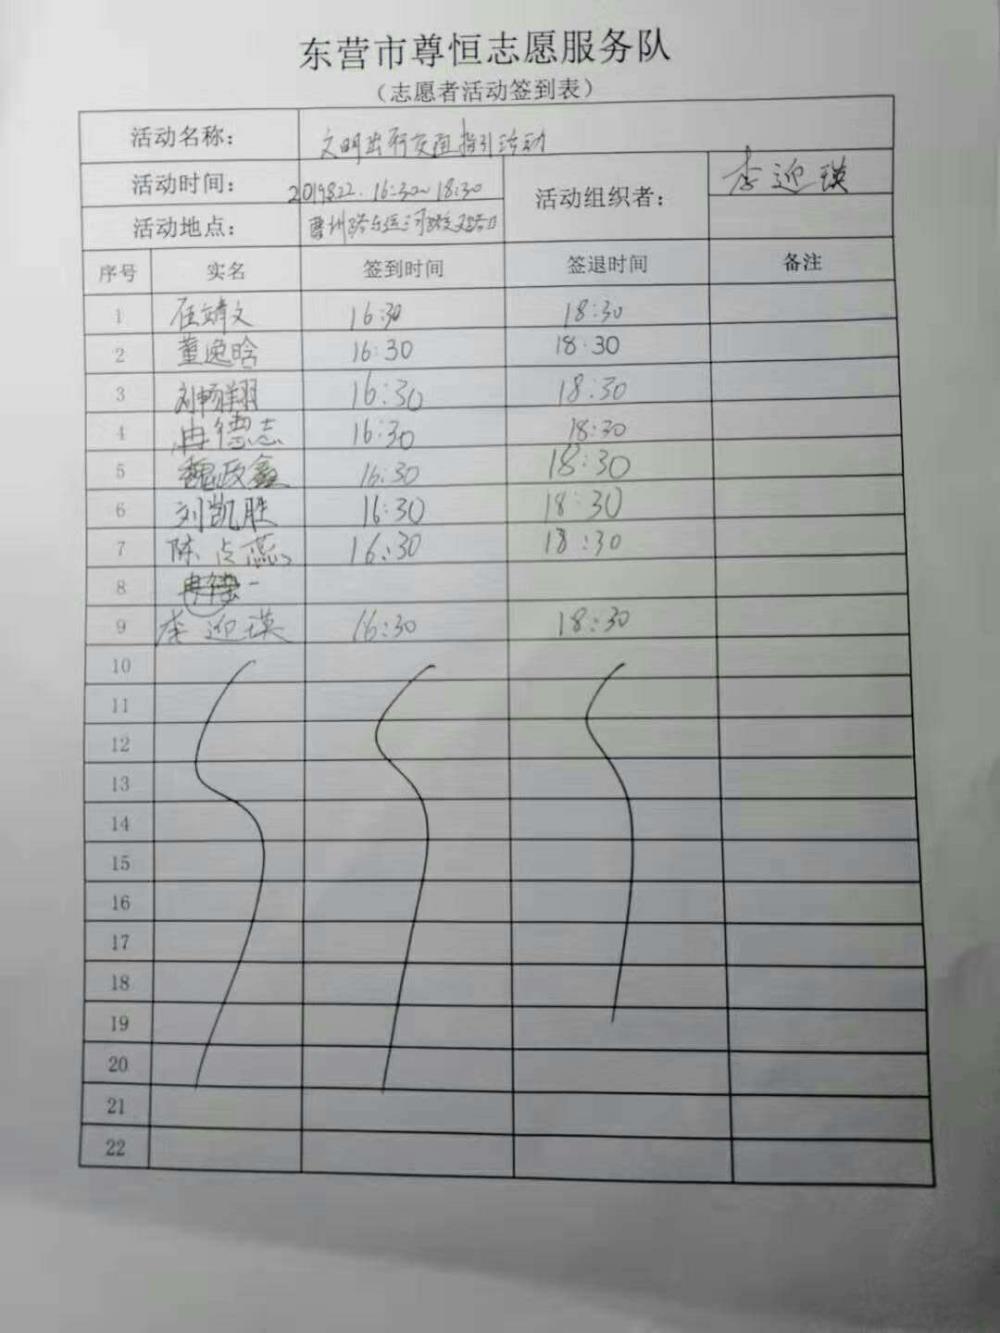 东营市尊恒志愿服务队
（志愿者活动签到表）
活动名称： 文明出行交通指引活动
活动时间： 2019822. 16:30~18:30 活动组织者： 李迎瑛
活动地点：
序号 实名 签到时间 签退时间 备注
1 任靖文 16:30 18:30
2 董逸晗 16:30 18:30
3 刘畅翔 16:30 18:30
4 冉德志 16:30 18:30
5 魏政鑫 16:30 18:30
6 刘凯胜 16:30 18:30
7 陈点燕 16:30 18:30
8
9 李迎瑛 16:30 18:30
10
11
12
13
14
15
16
17
18
19
20
21
22